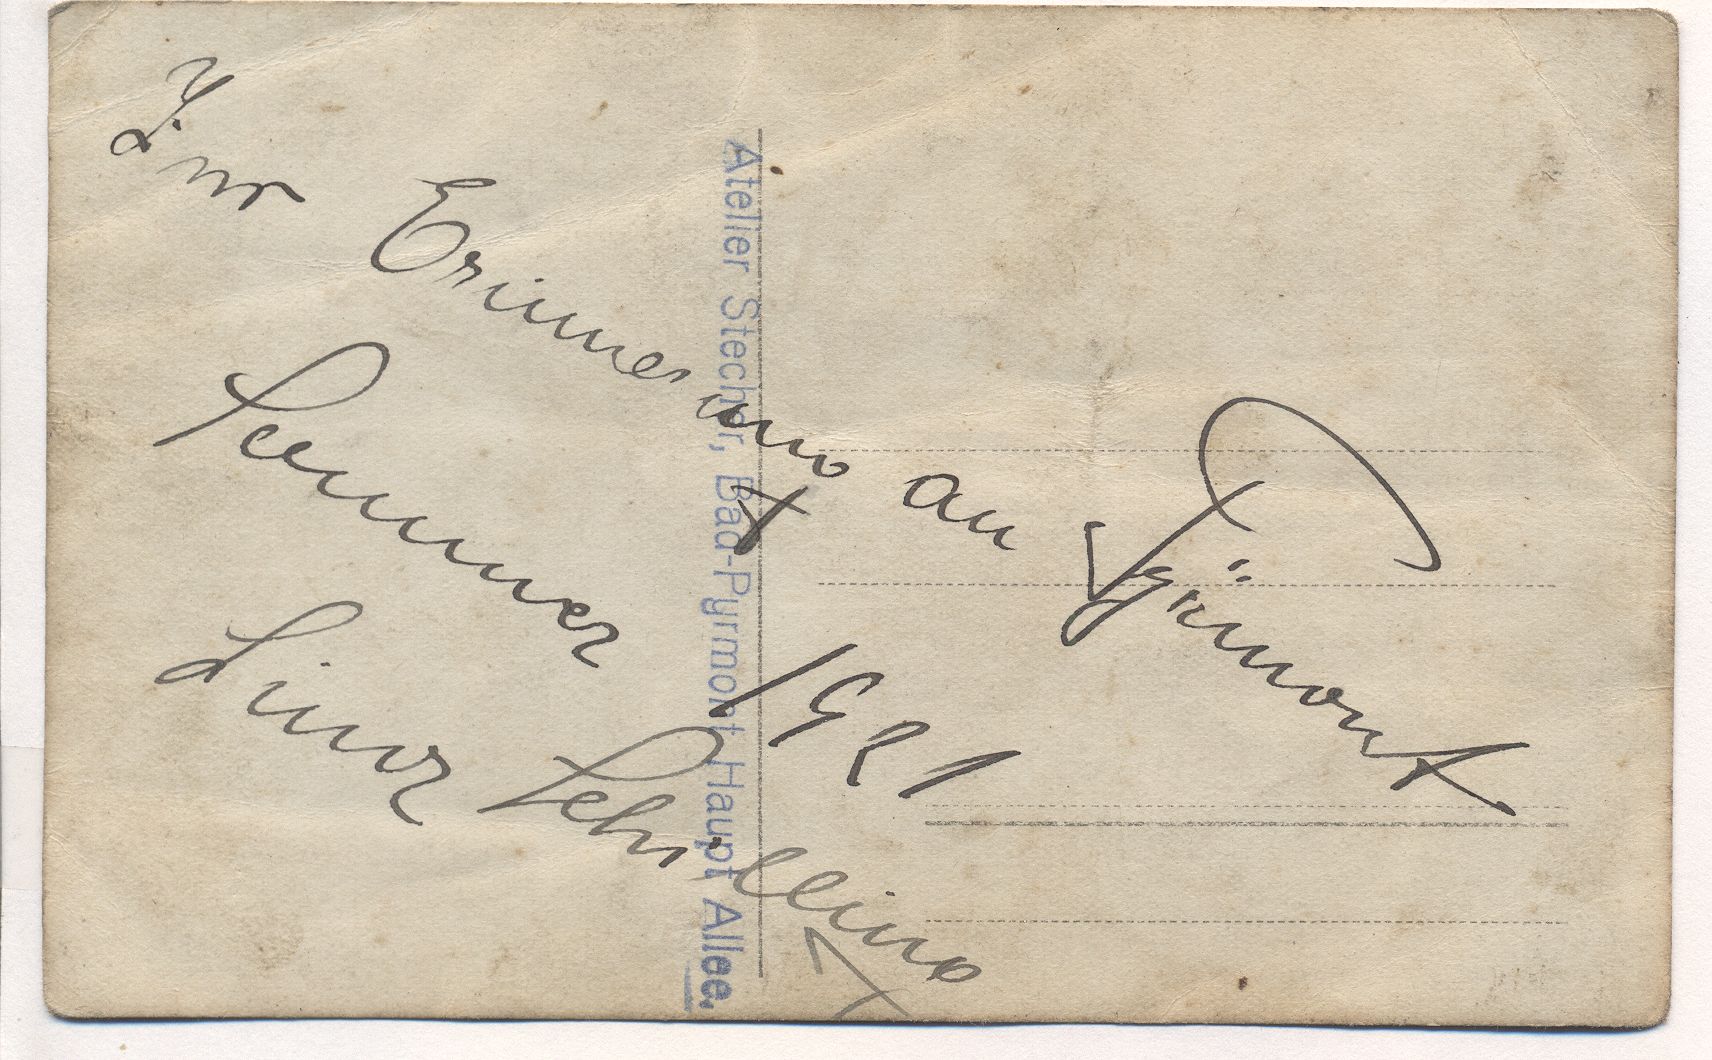 Zur Erinnerung an Pyrmont
Sommer 1921
Schilling
Atelier Stecher, Bad-Pyrmont Haupt Allee.